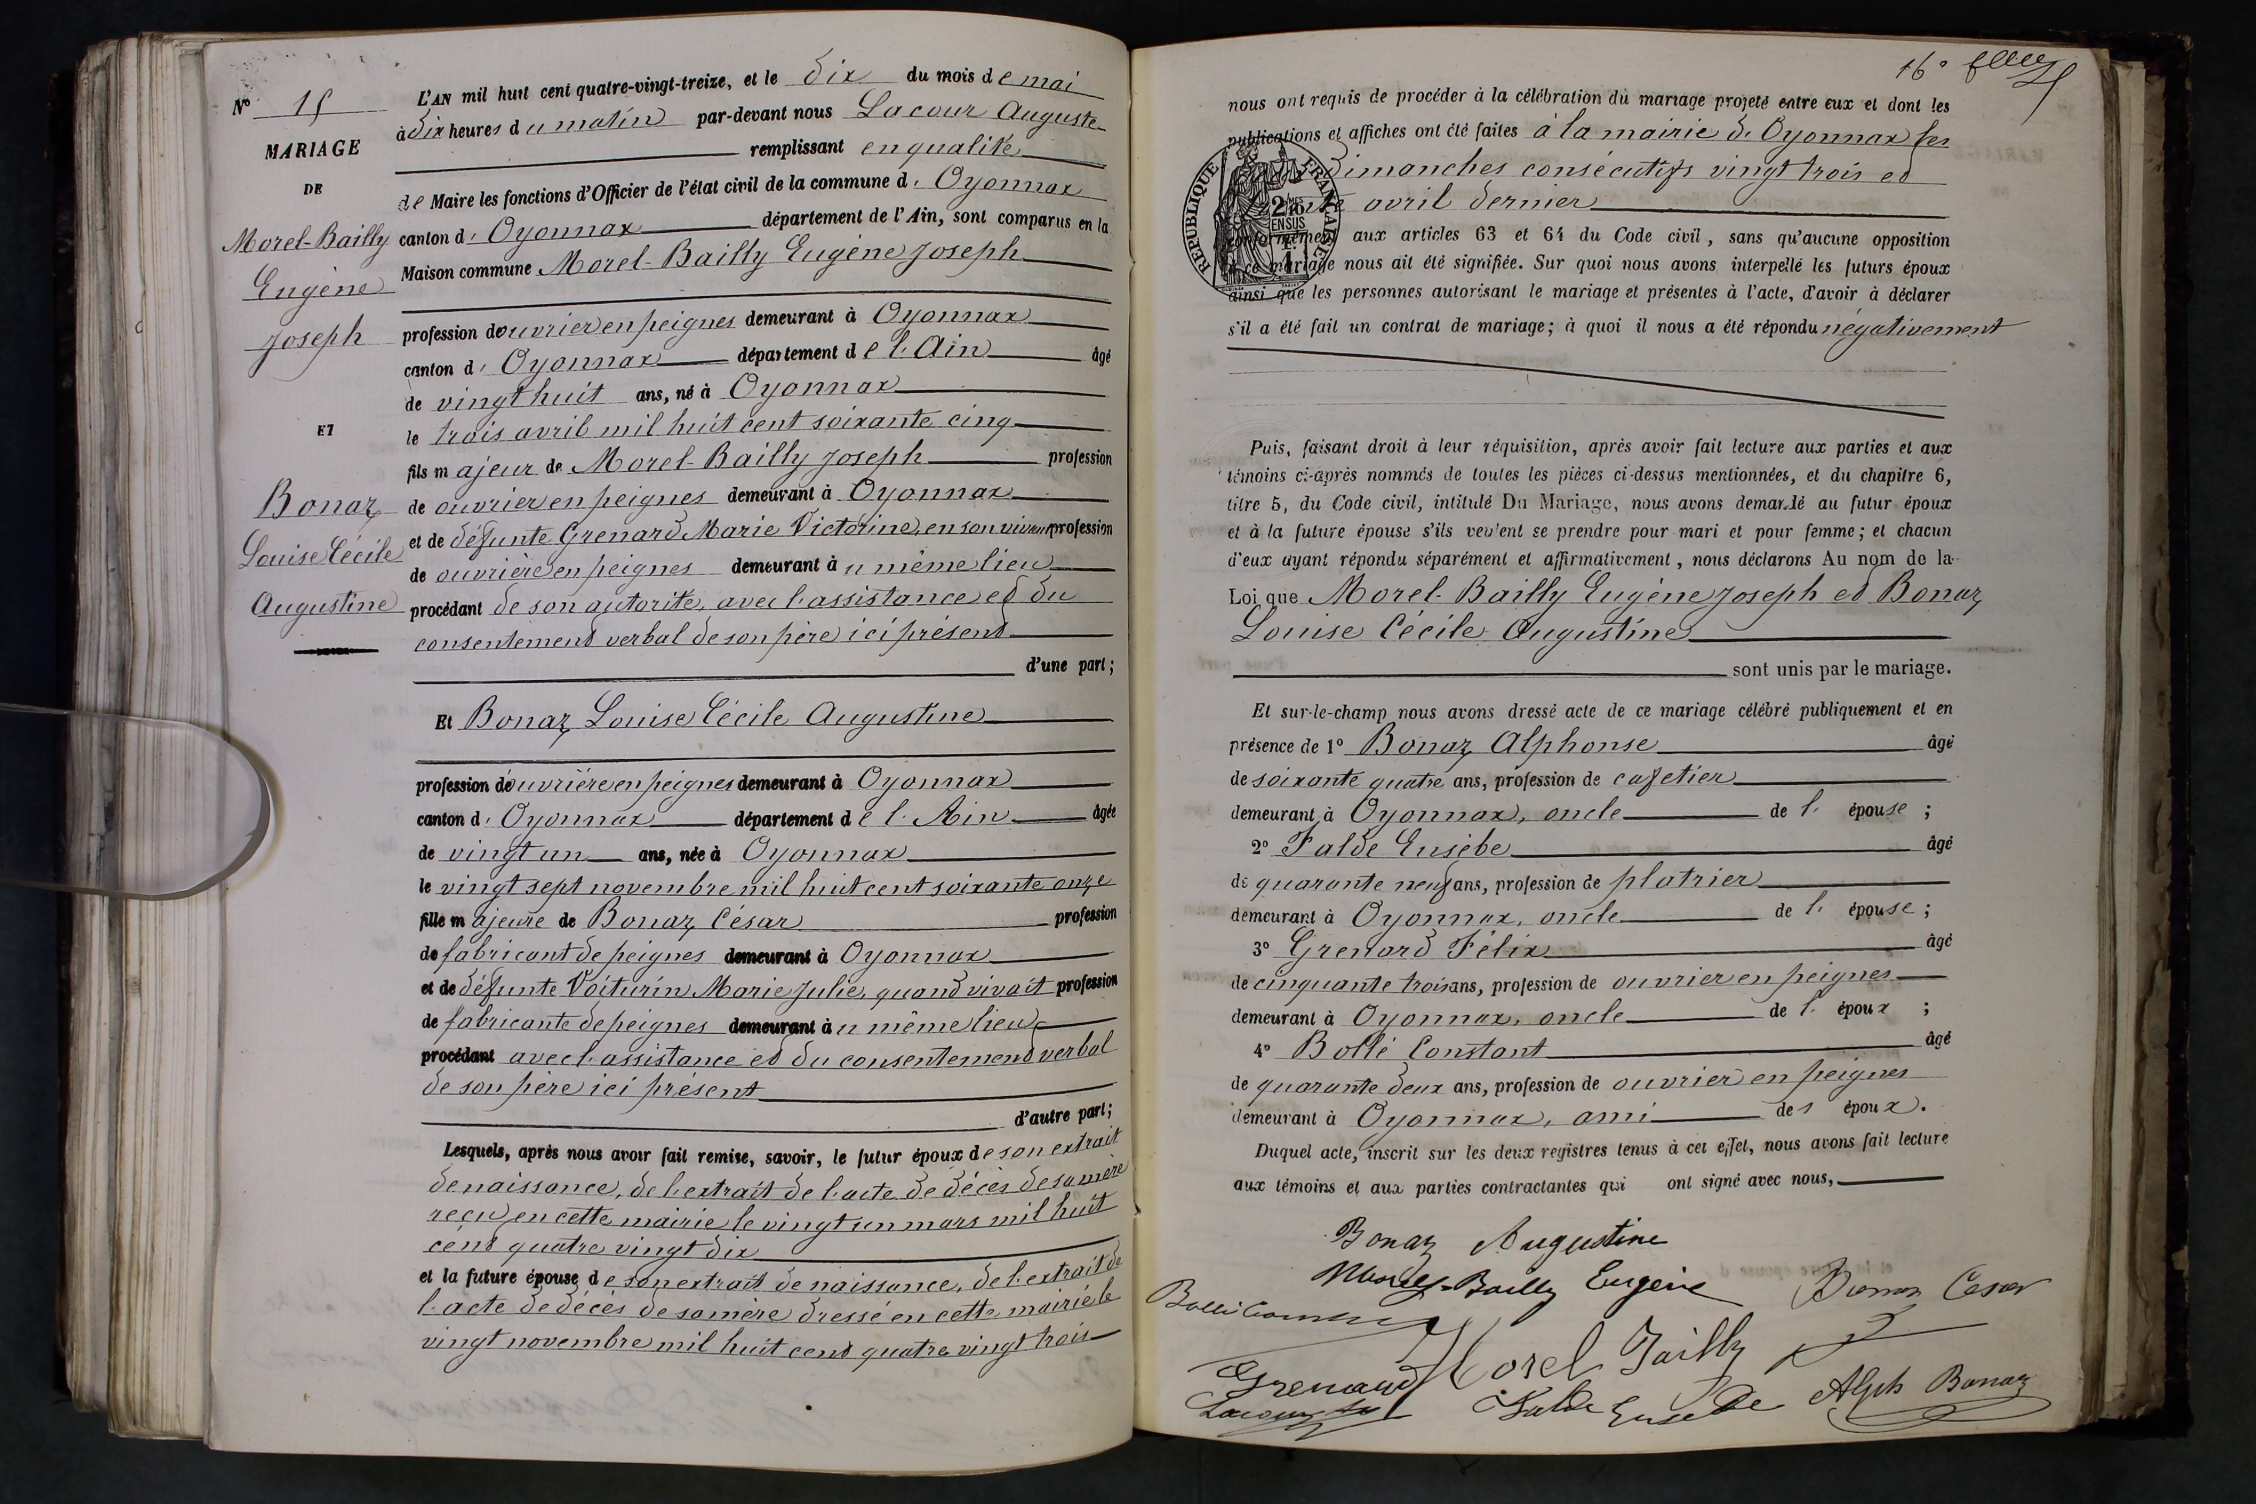 Nº 15
MARIAGE
DE
Morel-Bailly
Eugène
Joseph
ET
Bonaz
Louise Cécile
Augustine
L'AN mil huit cent quatre-vingt-treize, et le dix du mois de mai
à dix heures du matin par-devant nous Lacour Auguste
remplissant en qualité
de Maire les fonctions d'Officier de l'état civil de la commune d' Oyonnax
canton d' Oyonnax département de l'Ain, sont comparus en la
Maison commune Morel-Bailly Eugène Joseph
profession d'ouvrier en peignes demeurant à Oyonnax
canton d' Oyonnax département de l'Ain âgé
de vingt huit ans, né à Oyonnax
le trois avril mil huit cent soixante cinq
fils majeur de Morel-Bailly Joseph profession
de ouvrier en peignes demeurant à Oyonnax
et de défunte Grenard Marie Victorine, en son vivant profession
de ouvrière en peignes demeurant au même lieu
procédant de son autorité, avec l'assistance et du
consentement verbal de son père ici présent
d'une part;
Et Bonaz Louise Cécile Augustine
profession d'ouvrière en peignes demeurant à Oyonnax
canton d' Oyonnax département de l'Ain âgée
de vingt un ans, née à Oyonnax
le vingt sept novembre mil huit cent soixante onze
fille majeure de Bonaz César profession
de fabricant de peignes demeurant à Oyonnax
et de défunte Voiturin Marie Julie, quand vivait profession
de fabricante de peignes demeurant au même lieu
procédant avec l'assistance et du consentement verbal
de son père ici présent
d'autre part;
Lesquels, après nous avoir fait remise, savoir, le futur époux de son extrait
de naissance, de l'extrait de l'acte de décès de sa mère
reçu en cette mairie le vingt un mars mil huit
cent quatre vingt dix
et la future épouse de son extrait de naissance, de l'extrait de
l'acte de décès de sa mère dressé en cette mairie le
vingt novembre mil huit cent quatre vingt trois
16e
nous ont requis de procéder à la célébration du mariage projeté entre eux et dont les
publications et affiches ont été faites à la mairie d'Oyonnax les
dimanches consécutifs vingt trois et
avril dernier
RÉPUBLIQUE FRANÇAISE
2/10
EN SUS
conformément aux articles 63 et 64 du Code civil, sans qu'aucune opposition
à ce mariage nous ait été signifiée. Sur quoi nous avons interpellé les futurs époux
ainsi que les personnes autorisant le mariage et présentes à l'acte, d'avoir à déclarer
s'il a été fait un contrat de mariage; à quoi il nous a été répondu négativement
Puis, faisant droit à leur réquisition, après avoir fait lecture aux parties et aux
témoins ci-après nommés de toutes les pièces ci-dessus mentionnées, et du chapitre 6,
titre 5, du Code civil, intitulé Du Mariage, nous avons demandé au futur époux
et à la future épouse s'ils veulent se prendre pour mari et pour femme; et chacun
d'eux ayant répondu séparément et affirmativement, nous déclarons Au nom de la
Loi que Morel-Bailly Eugène Joseph et Bonaz
Louise Cécile Augustine
sont unis par le mariage.
Et sur-le-champ nous avons dressé acte de ce mariage célébré publiquement et en
présence de 1º Bonaz Alphonse âgé
de soixante quatre ans, profession de cafetier
demeurant à Oyonnax, oncle de l' épouse;
2º Falde Eusèbe âgé
de quarante neuf ans, profession de platrier
demeurant à Oyonnax, oncle de l' épouse;
3º Grenard Félix âgé
de cinquante trois ans, profession de ouvrier en peignes
demeurant à Oyonnax, oncle de l' époux;
4º Bollé Constant âgé
de quarante deux ans, profession de ouvrier en peignes
demeurant à Oyonnax, ami des époux.
Duquel acte, inscrit sur les deux registres tenus à cet effet, nous avons fait lecture
aux témoins et aux parties contractantes qui ont signé avec nous,
Bonaz Augustine
Morel-Bailly Eugène
Bonaz Cesar
Bollé
Morel Bailly
Grenard
Falde Eusèbe
Alph Bonaz
Lacour